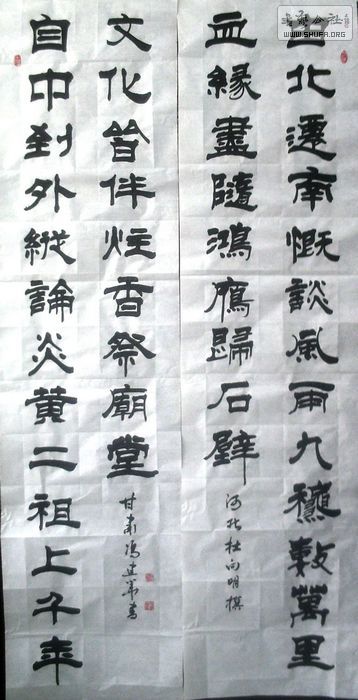 自北遷南慨談風雨九穗數萬里
血緣盡隨鴻雁歸石壁
河北杜向明撰
自中到外縱論炎黃二祖上千年
文化皆伴炷香祭廟堂
甘肅馮建華書
WWW.SHUFA.ORG